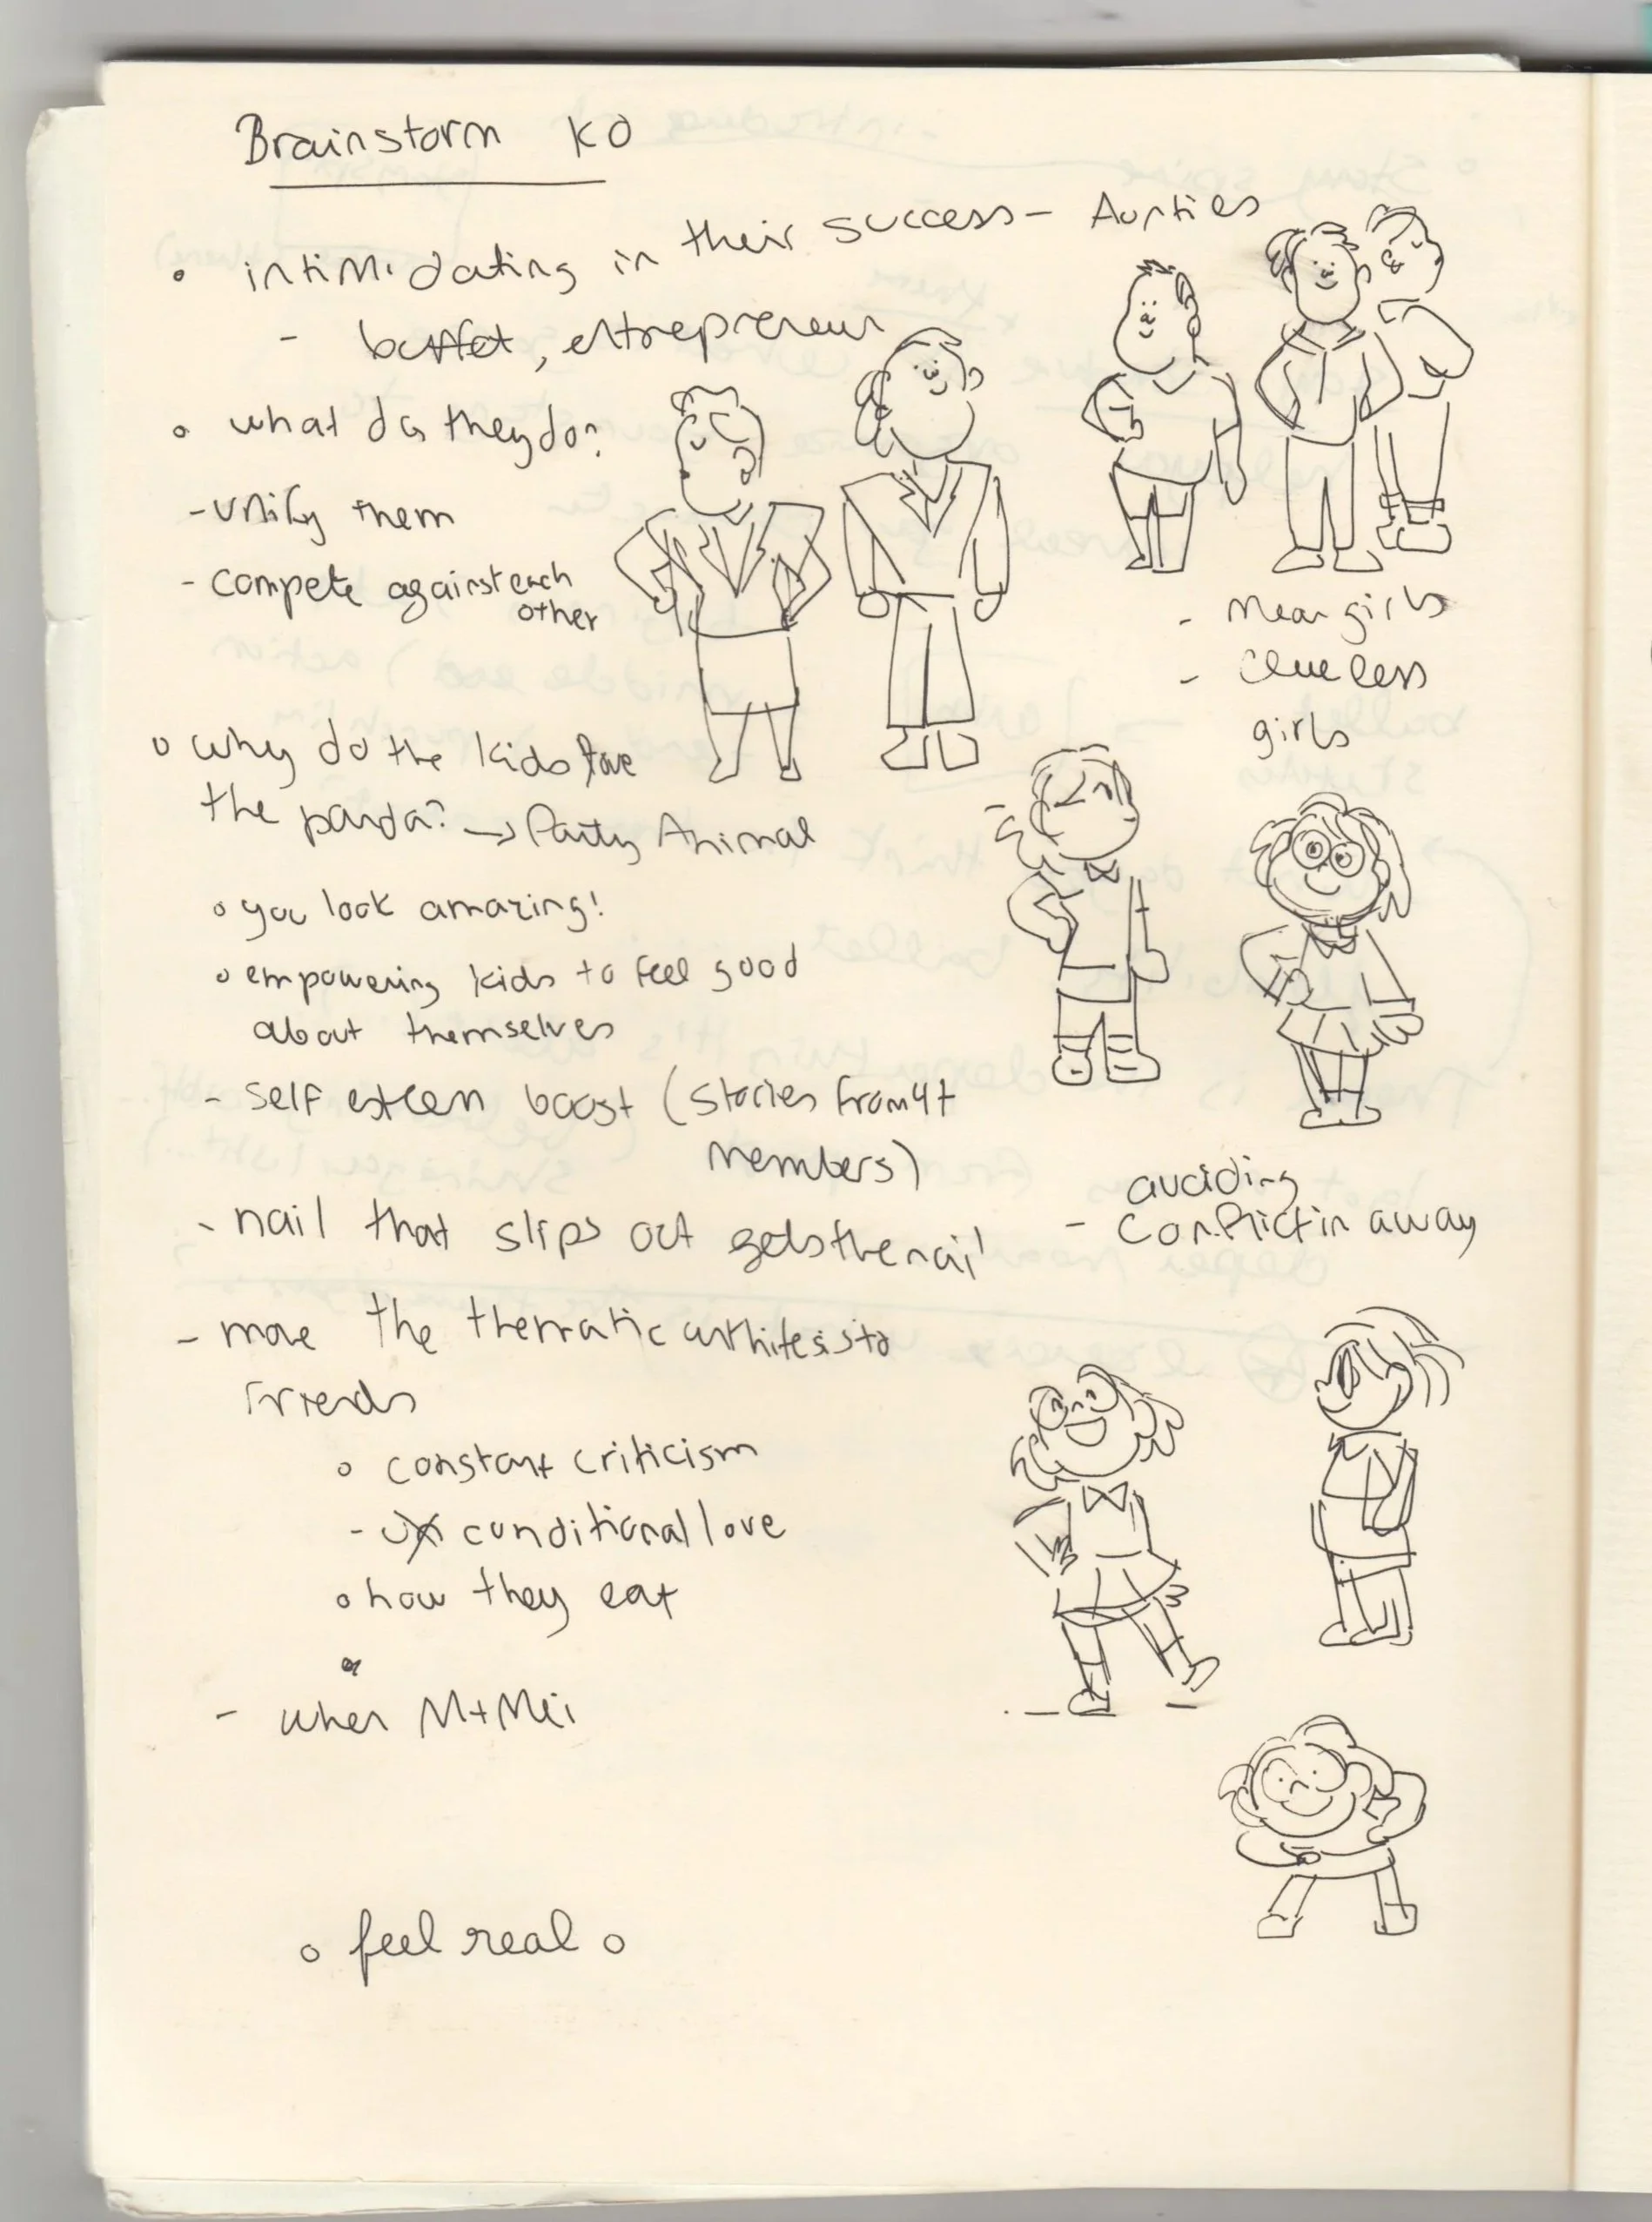 Brainstorm KO
• intimidating in their success - Aunties
- buffet, entrepreneur
• what do they do?
- unify them
- compete against each
other
- Mean girls
- Clueless
girls
• why do the kids love
the panda? → Party Animal
• you look amazing!
• empowering kids to feel good
about themselves
- self esteem boost (stories from 4t
members)
- nail that slips out gets the nail
- avoiding
conflict in away
- move the thematic antithesis to
friends
• constant criticism
- conditional love
• how they eat
- when M+Mei
o feel real o